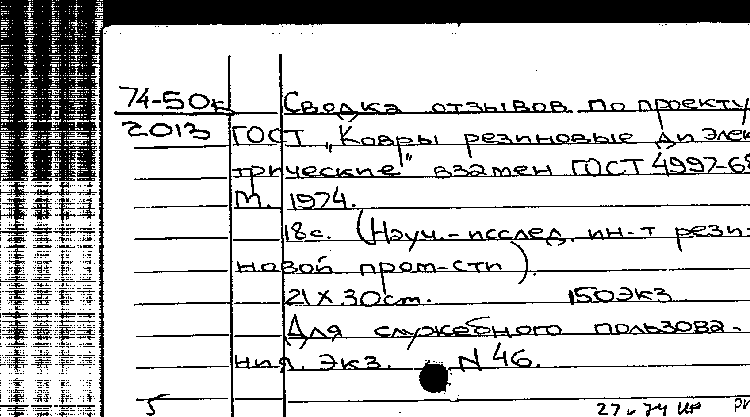 74-50к Сводка отзывов по проекту
2013 ГОСТ „Ковры резиновые диэлек
трические" взамен ГОСТ 4997-68
М. 1974.
18с. (Науч.-исслед. ин-т рези-
новой пром-сти).
21 х 30 cm. 150экз
Для служебного пользова-
ния. Экз. N 46.
5